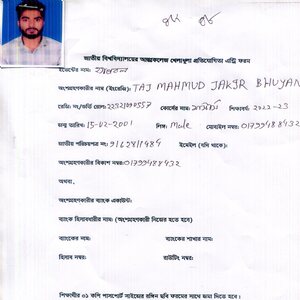 জাতীয় বিশ্ববিদ্যালয়ের আন্তঃকলেজ খেলাধুলা প্রতিযোগিতা এন্ট্রি ফরম
ইভেন্টের নাম:
অংশগ্রহণকারীর নাম (ইংরেজি): TAJ MAHMUD JAKIR BHUYAN
রেজি: নং/ভর্তি রোল: কোর্সের নাম: শিক্ষাবর্ষ: ২০২২-২৩
জন্ম তারিখ: 15-02-2001 লিঙ্গ: Male মোবাইল নম্বর: 01799488432
জাতীয় পরিচয়পত্র নং: 9162811484 ইমেইল (যদি থাকে):
অংশগ্রহণকারীর বিকাশ নম্বর: 01799488432
অথবা,
অংশগ্রহণকারীর ব্যাংক একাউন্ট:
ব্যাংক হিসাবধারীর নাম: (অংশগ্রহণকারী নিজের হতে হবে)
ব্যাংকের নাম: ব্যাংকের শাখার নাম:
হিসাব নম্বর: রাউটিং নম্বর:
শিক্ষার্থীর ০১ কপি পাসপোর্ট সাইজের রঙ্গিন ছবি ফরমের সাথে জমা দিতে হবে।